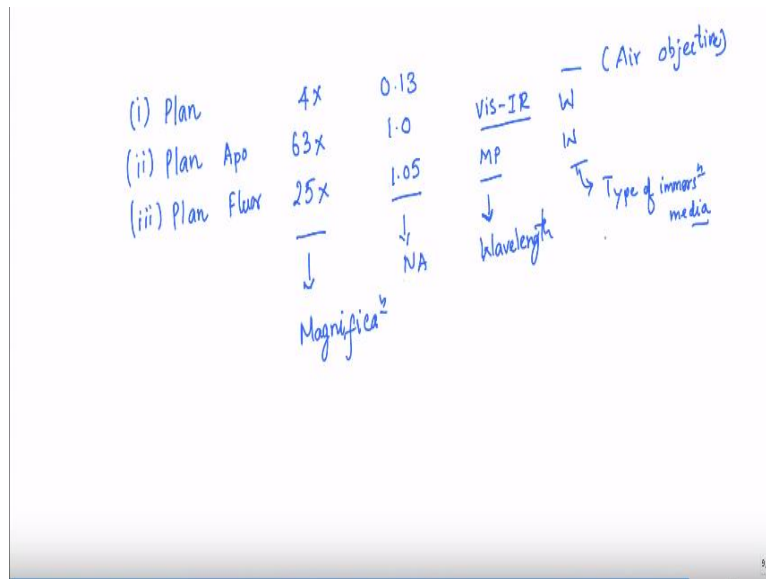 (i) Plan 4x 0.13 — (Air objective)
(ii) Plan Apo 63x 1.0 Vis-IR W
(iii) Plan Fluor 25x 1.05 MP W
Magnificaⁿ
NA
Wavelength
Type of immersⁿ
media